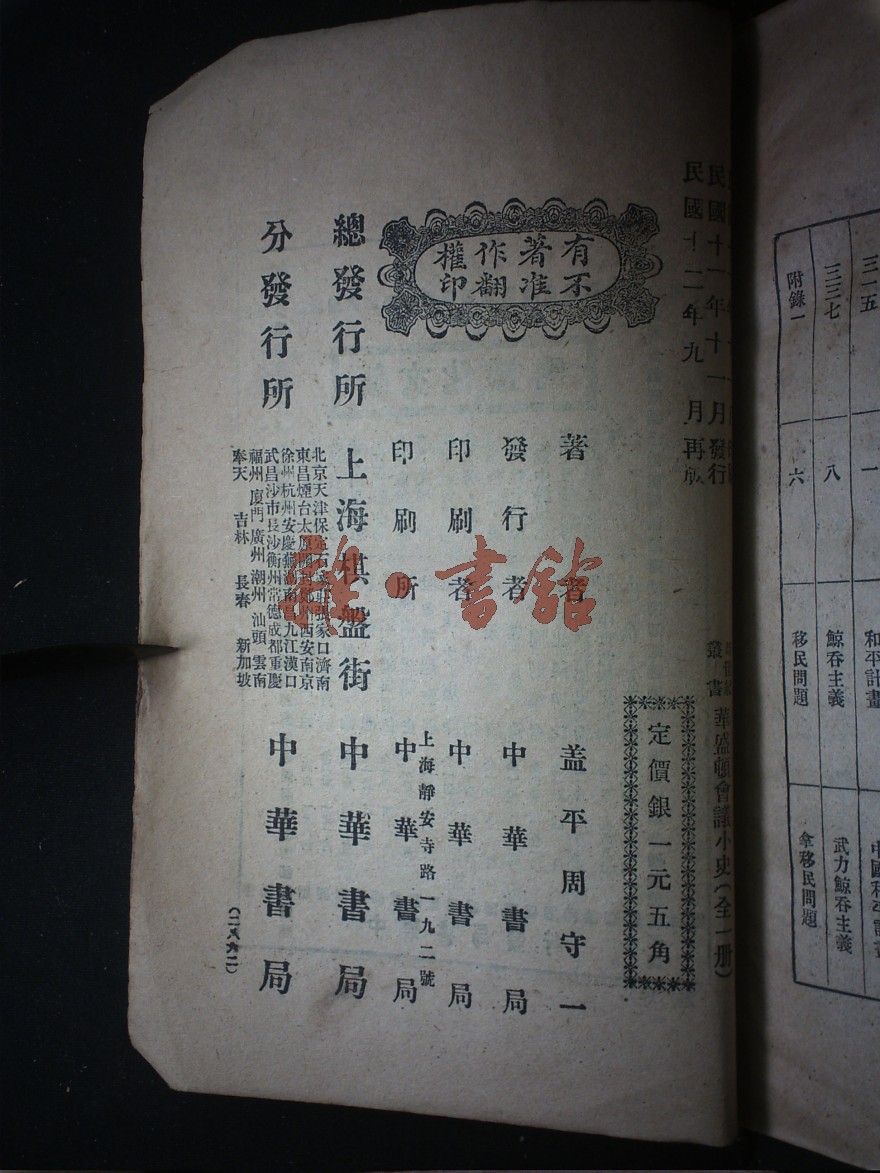 民國十一年十一月發行
民國十二年九月再版
叢書 華盛頓會議小史(全一册)
定價銀一元五角
有著作權
不准翻印
著者 盖平周守一
發行者 中華書局
印刷者 中華書局
上海靜安寺路一九二號
印刷所 中華書局
總發行所 上海棋盤街 中華書局
分發行所
北京天津保定石家莊張家口濟南
東昌煙台太原 西安南京
徐州杭州安慶 南昌九江漢口
武昌沙市長沙衡州常德成都重慶
福州廈門廣州潮州汕頭雲南
奉天 吉林 長春 新加坡
中華書局
(一八六二)
雜·書館
三一五 一 和平計畫
三三七 八 鯨吞主義 武力鯨吞主義
附錄一 六 移民問題 拿移民問題